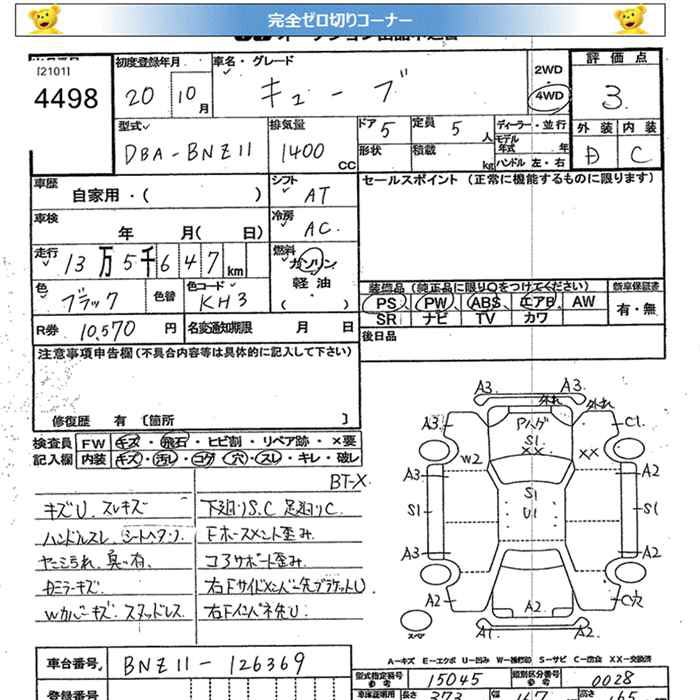 完全ゼロ切りコーナー
[2101]
4498
初度登録年月 車名・グレード
20 10月 キューブ
2WD
4WD
評価点
3
型式 DBA-BNZ11
排気量 1400 CC
ドア 5 定員 5 人
形状 積載 kg
ディーラー・並行
モデル年式 年
ハンドル 左・右
外装 内装
C
車歴 自家用・( )
シフト AT
セールスポイント (正常に機能するものに限ります)
車検 年 月( 日)
冷房 AC
走行 13万5千647km
燃料 ガソリン
軽油
( )
色 ブラック 色替 色コード KH3
装備品 (純正品に限り○をつけてください) 新車保証書
PS PW ABS エアB AW 有・無
SR ナビ TV カワ
R券 10,570 円 名変通知期限 月 日
後日品
注意事項申告欄 (不具合内容等は具体的に記入して下さい)
修復歴 有 [箇所 ]
検査員 FW キズ・飛石・ヒビ割・リペア跡・×要
記入欄 内装 キズ・汚レ・コゲ・穴・スレ・キレ・破レ
BT-X
キズU スレキズ 下廻りS.C 足廻りC
ハンドルスレ
Fホースメント歪み
コアサポート歪み
カミラーキズ 右Fサイドメンバー先ブラケットU
Wカバーキズ スタッドレス 右Fインパネ先U
A3 A3
外れ 外れ
A3 Pハゲ C1
S1
XX XX
W2
A3 A2
S1
U1
S1
A3 A2
A2 A2 C穴
スペア A1 A2
A-キズ E-エクボ U-凹み W-補修印 S-サビ C-腐食 XX-交換済
車台番号 BNZ11-126369
型式指定番号 15045 類別区分番号 0028
登録番号
長さ 373 幅 167 高さ 165